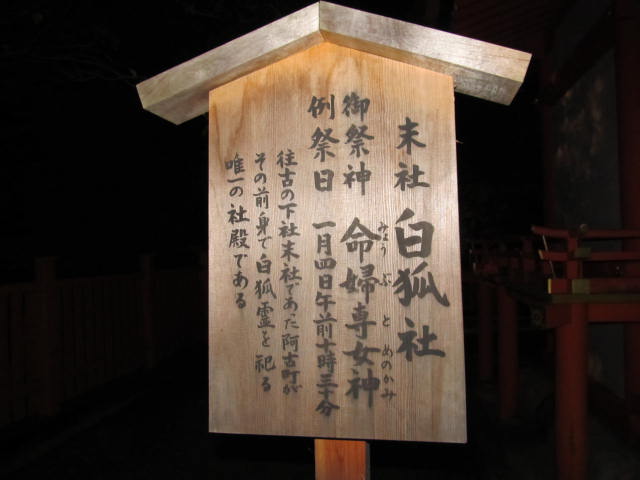 末社 白狐社
御祭神 命婦専女神
みょうぶとめのかみ
例祭日 一月四日午前十時三十分
往古の下社末社であた阿古町が
その前身で白狐霊を祀る
唯一の社殿である